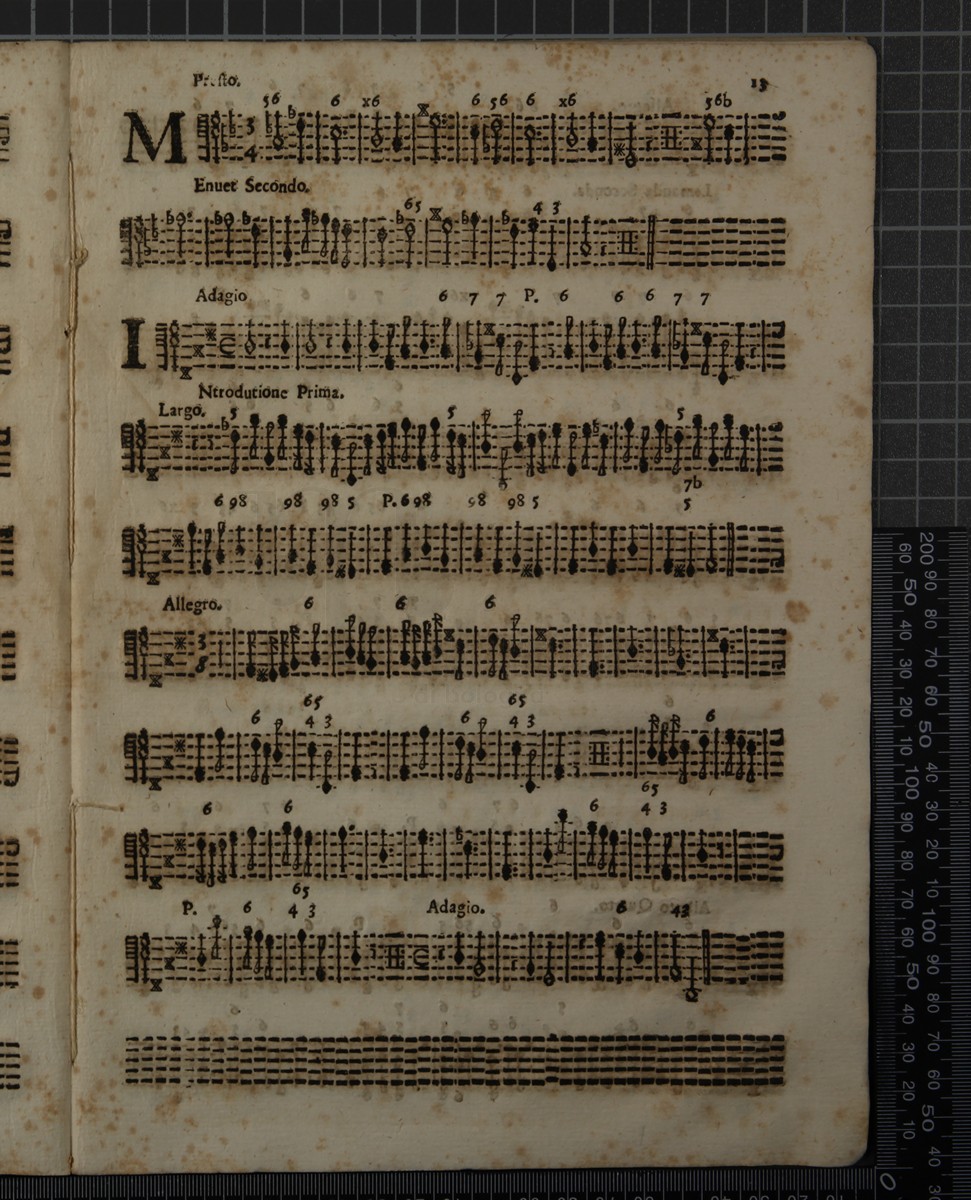 Presto. 13
5 6 6 x6 6 5 6 6 x6 5 6b
M
Enuet Secondo.
6 5 4 3
Adagio 6 7 7 P. 6 6 6 7 7
I
Ntrodutione Prima.
Largo. 5 5 5
7b
6 9 8 9 8 9 8 5 P. 6 9 8 9 8 9 8 5 5
Allegro. 6 6 6
6 5 6 5
6 4 3 6 4 3 6
6 5
6 6 6 4 3
6 5
P. 6 4 3 Adagio. 6 4 3